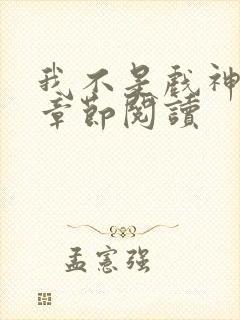 我不是戲神
章節閱讀
孟憲強